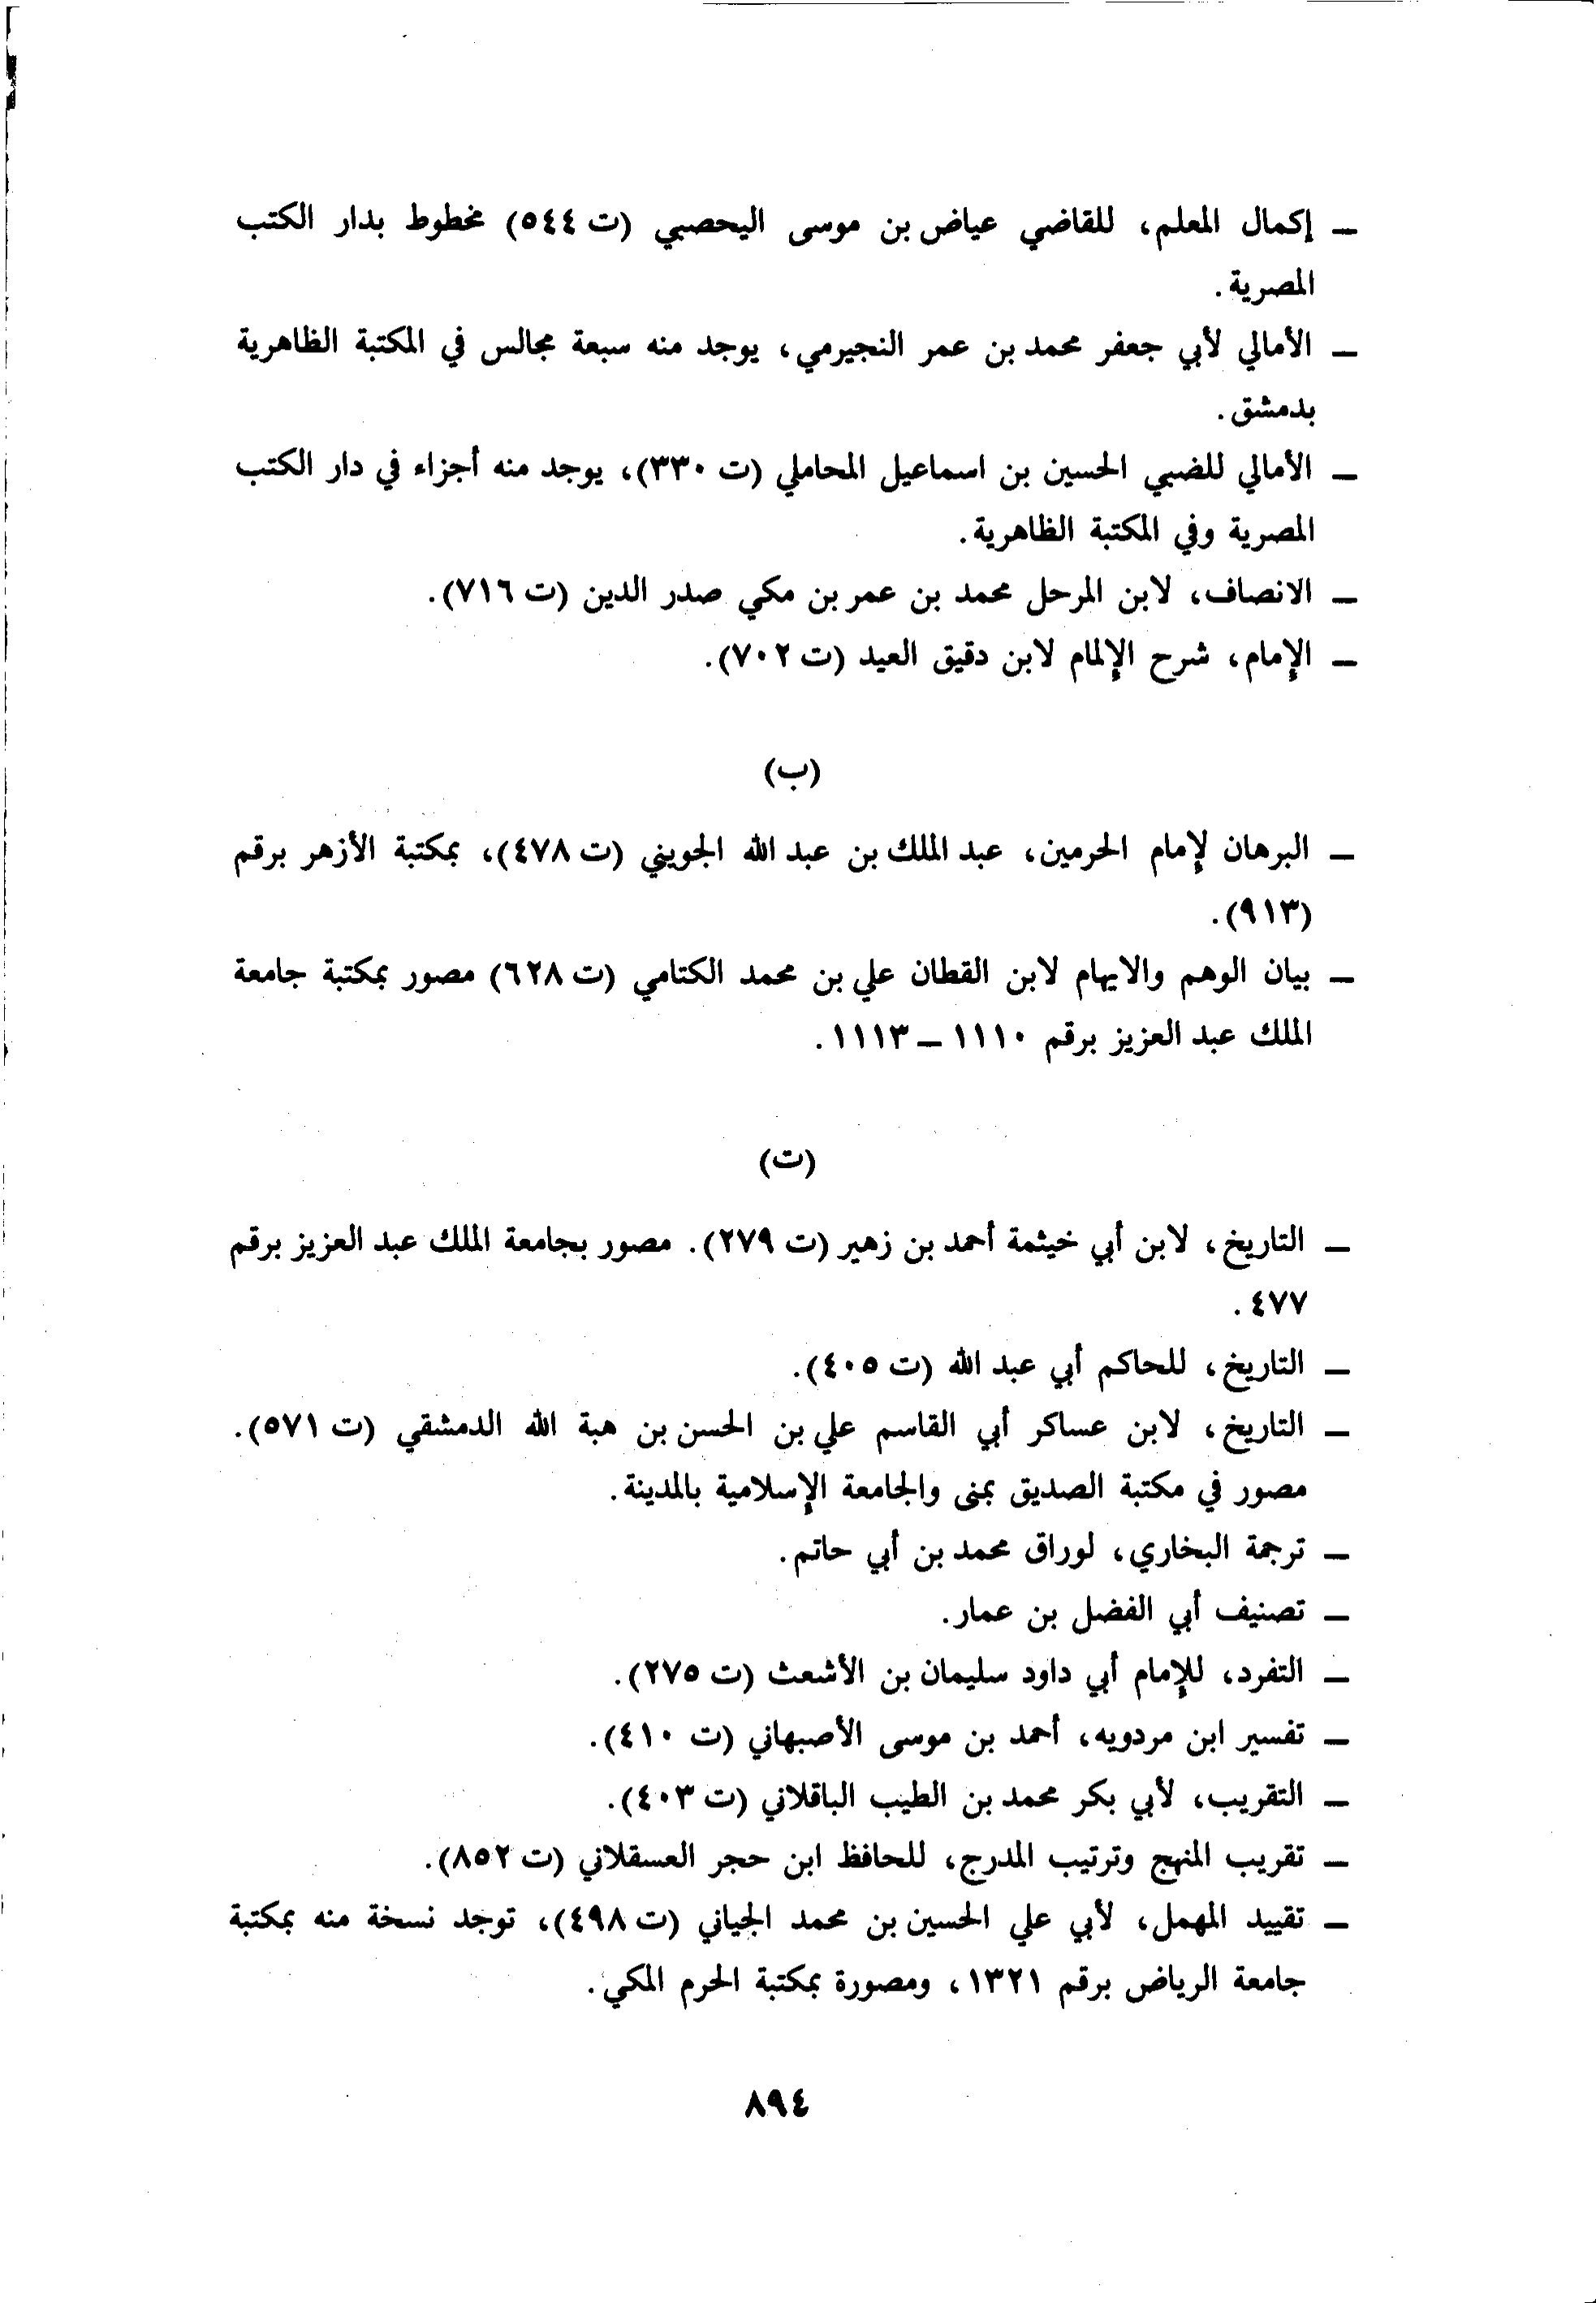 ــ إكمال المعلم، للقاضي عياض بن موسى اليحصبي (ت ٥٤٤) مخطوط بدار الكتب
المصرية.
ــ الأمالي لأبي جعفر محمد بن عمر النجيرمي، يوجد منه سبعة مجالس في المكتبة الظاهرية
بدمشق.
ــ الأمالي للضبي الحسين بن اسماعيل المحاملي (ت ٣٣٠)، يوجد منه أجزاء في دار الكتب
المصرية وفي المكتبة الظاهرية.
ــ الانصاف، لابن المرحل محمد بن عمر بن مكي صدر الدين (ت ٧١٦).
ــ الإمام، شرح الإلمام لابن دقيق العيد (ت ٧٠٢).
(ب)
ــ البرهان لإمام الحرمين، عبد الملك بن عبد الله الجويني (ت ٤٧٨)، بمكتبة الأزهر برقم
(٩١٣).
ــ بيان الوهم والايهام لابن القطان علي بن محمد الكتامي (ت ٦٢٨) مصور بمكتبة جامعة
الملك عبد العزيز برقم ١١١٠ ــ ١١١٣.
(ت)
ــ التاريخ، لابن أبي خيثمة أحمد بن زهير (ت ٢٧٩). مصور بجامعة الملك عبد العزيز برقم
٤٧٧.
ــ التاريخ، للحاكم أبي عبد الله (ت ٤٠٥).
ــ التاريخ، لابن عساكر أبي القاسم علي بن الحسن بن هبة الله الدمشقي (ت ٥٧١).
مصور في مكتبة الصديق بمنى والجامعة الإسلامية بالمدينة.
ــ ترجمة البخاري، لوراق محمد بن أبي حاتم.
ــ تصنيف أبي الفضل بن عمار.
ــ التفرد، للإمام أبي داود سليمان بن الأشعث (ت ٢٧٥).
ــ تفسير ابن مردويه، أحمد بن موسى الأصبهاني (ت ٤١٠).
ــ التقريب، لأبي بكر محمد بن الطيب الباقلاني (ت ٤٠٣).
ــ تقريب المنهج وترتيب المدرج، للحافظ ابن حجر العسقلاني (ت ٨٥٢).
ــ تقييد المهمل، لأبي علي الحسين بن محمد الجياني (ت ٤٩٨)، توجد نسخة منه بمكتبة
جامعة الرياض برقم ١٣٢١، ومصورة بمكتبة الحرم المكي.
٨٩٤